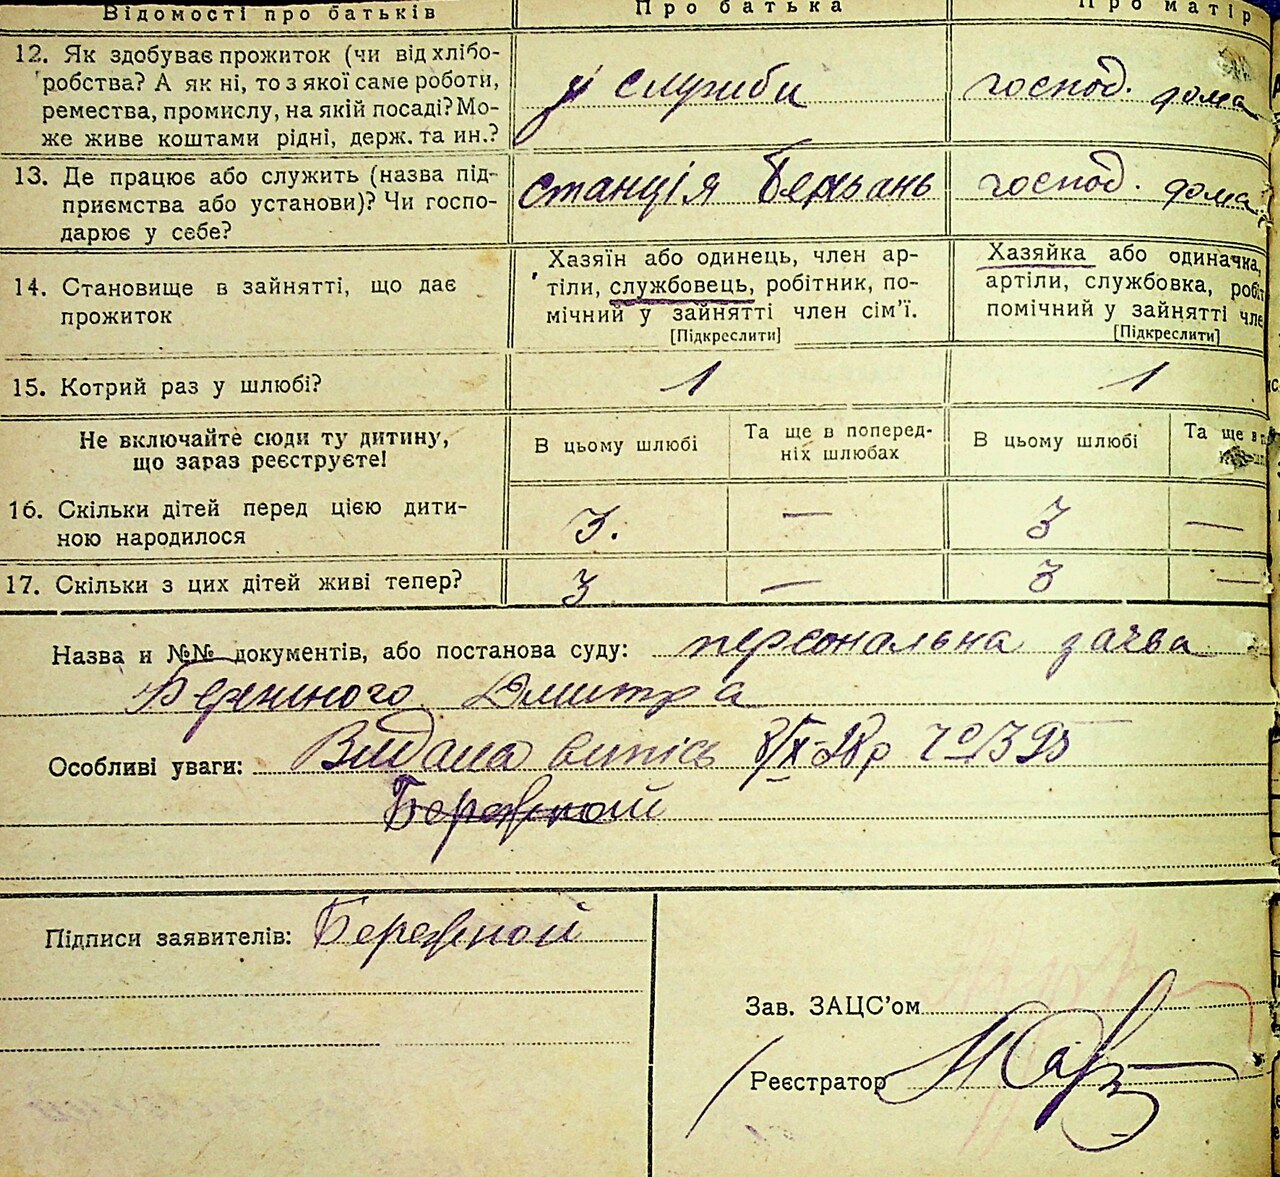 Відомості про батьків Про батька Про матір
12. Як здобуває прожиток (чи від хлібо-
робства? А як ні, то з якої саме роботи,
ремества, промислу, на якій посаді? Мо-
же живе коштами рідні, держ. та ин.?
у служби
господ. дома
13. Де працює або служить (назва під-
приємства або установи)? Чи госпо-
дарює у себе?
станція
господ. дома
14. Становище в зайнятті, що дає
прожиток
Хазяїн або одинець, член ар-
тіли, службовець, робітник, по-
мічний у зайнятті член сім'ї.
[Підкреслити]
Хазяйка або одиначка,
артіли, службовка, робіт
помічний у зайнятті чле
[Підкреслити]
15. Котрий раз у шлюбі? 1 1
Не включайте сюди ту дитину,
що зараз реєструєте!
В цьому шлюбі
Та ще в поперед-
ніх шлюбах
В цьому шлюбі
Та ще в
16. Скільки дітей перед цією дити-
ною народилося
3. — 3 —
17. Скільки з цих дітей живі тепер? 3 — 3 —
Назва и №№ документів, або постанова суду: персональна заява
Дмитра
Особливі уваги: Видана випись
Бережной
Підписи заявителів: Бережной
Зав. ЗАЦС'ом
Реєстратор